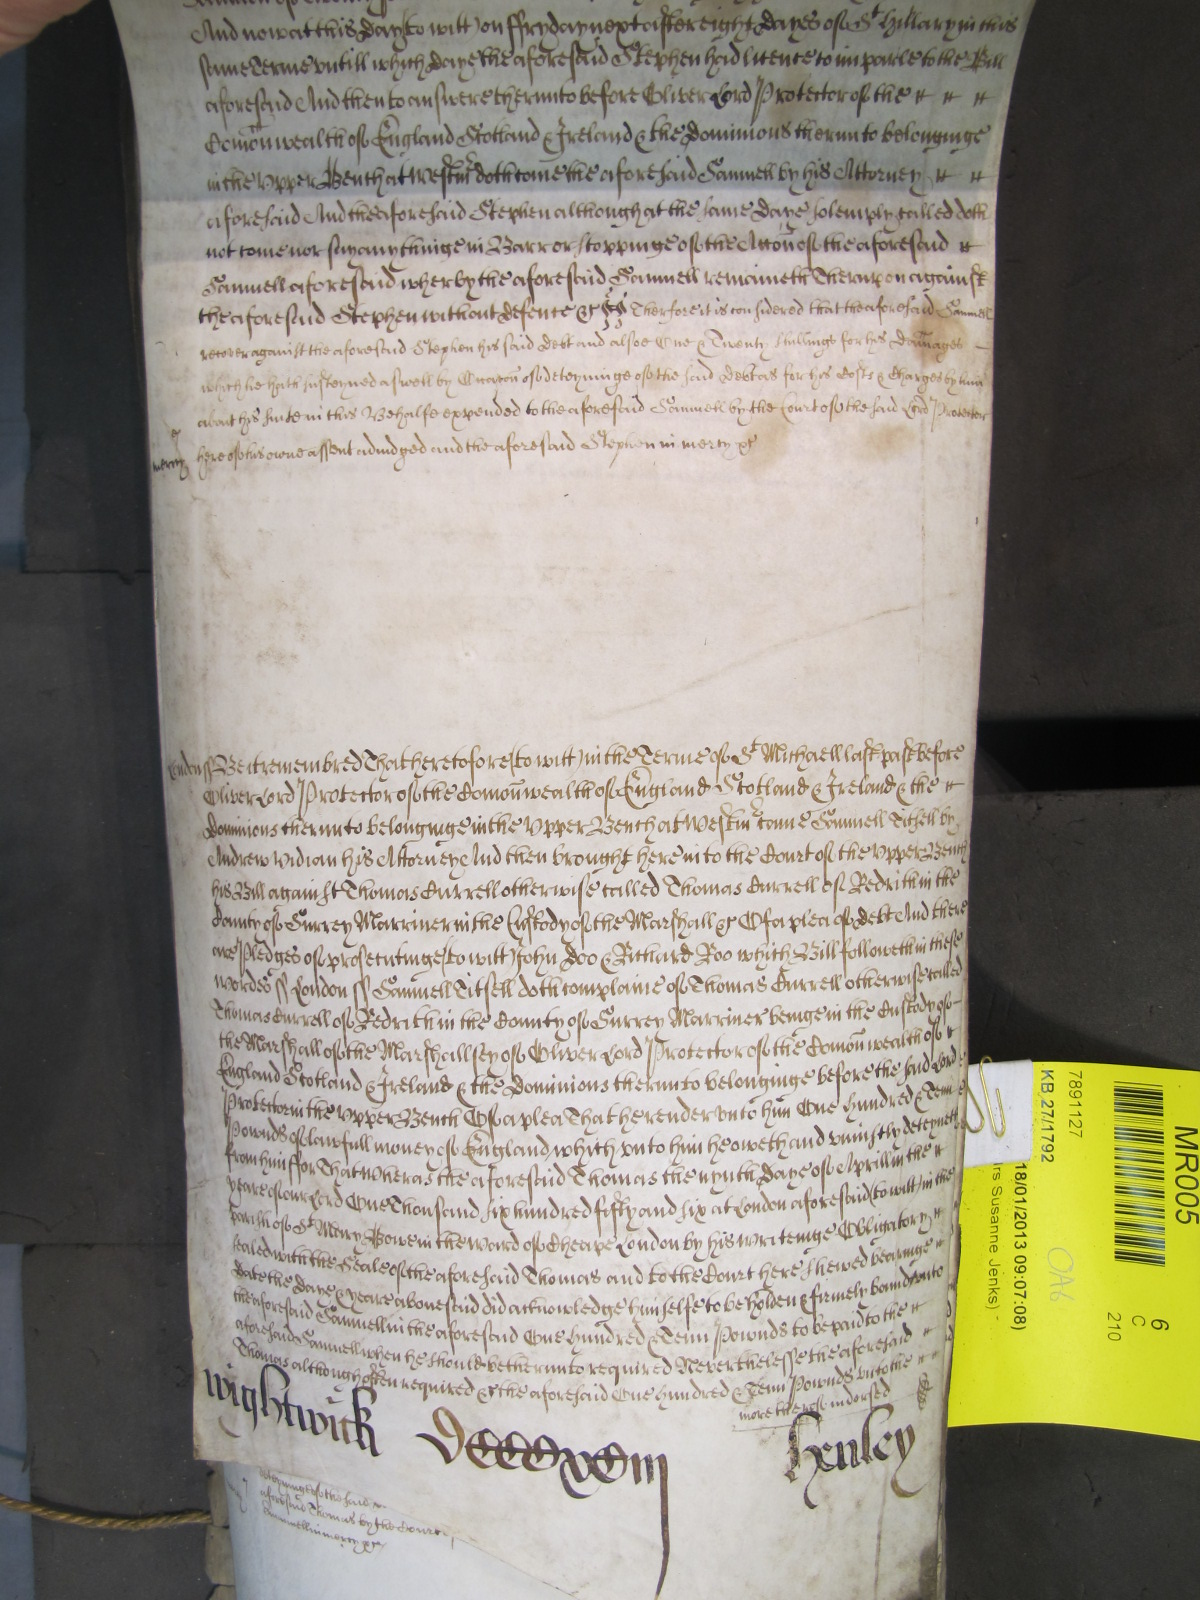 And now at this day (to witt) on ffryday next after eight dayes of St Hillary in this
same Terme untill which daye the aforesaid Stephen had licence to imparle to the Bill
aforesaid And then to answere therunto before Oliver Lord Protector of the
Comonwealth of England Scotland & Ireland & the dominions therunto belonginge
in the Upper Bench at Westmr doth come the aforesaid Samuell by his Attorney
aforesaid And the aforesaid Stephen although at the same daye solemply called doth
not come nor say any thinge in Barr or stoppinge of the Accon of the aforesaid
Samuell aforesaid wherby the aforesaid Samuell remaineth Therupon against
the aforesaid Stephen without defence &c Therfore it is considered that the aforesaid Samuell
recover against the aforesaid Stephen his said debt and alsoe One & Twenty shillings for his damages
which he hath susteyned aswell by Occacon of deteyninge of the said debt as for his Costs & Charges by him
about his suite in this Behalfe expended to the aforesaid Samuell by the Court of the said Lord Protector
mercy here of his owne assent adiudged and the aforesaid Stephen in mercy &c
London ss Be it remembred That heretofore (to witt) in the Terme of St Michaell last past before
Oliver Lord Protector of the Comonwealth of England Scotland & Ireland & the
dominions therunto belonginge in the Upper Bench at Westmr came Samuell Titsell by
Andrew Vidian his Attorney And then brought here into the Court of the Upper Bench
his Bill against Thomas Currell otherwise called Thomas Currell of Redrith in the
County of Surrey Marriner in the Custody of the Marshall &c Of a plea of debt And there
are Pledges of prosecutinge (to witt) John Doo & Richard Roo which Bill followeth in these
wordes ss London ss Samuell Titsell doth complaine of Thomas Currell otherwise called
Thomas Currell of Redrith in the County of Surrey Marriner beinge in the Custody of
the Marshall of the Marshallsey of Oliver Lord Protector of the Comonwealth of
England Scotland & Ireland & the Dominions therunto belonginge before the said Lord
Protector in the Upper Bench Of a plea That he render unto him One hundred & Tenn
Pownds of lawfull money of England which unto him he oweth and uniustly deteyneth
from him ffor That Wheras the aforesaid Thomas the nynth daye of Aprill in the
yeare of our Lord One Thousand six hundred fifty and six at London aforesaid (to witt) in the
parish of St Mary Bowe in the ward of Cheape London by his writeinge Obligatory
sealed with the Seale of the aforesaid Thomas and to the Court here shewed bearinge
date the daye & yeare abovesaid did acknowledge himselfe to be holden & firmely bound unto
the aforesaid Samuell in the aforesaid One hundred & Tenn Pownds to be paid to the
aforesaid Samuell when he should be therunto required Neverthelesse the aforesaid
Thomas although often required &c the aforesaid One hundred & Tenn Pownds unto the
more therof indorsed
Wightwick
Henley
deteyninge of the said
aforesaid Thomas by the Court
Samuell in mercy &c
MR005
6
C
210
7891127
KB 27/1792
18/01/2013 09:07:08)
rs Susanne Jenks) -
OA6